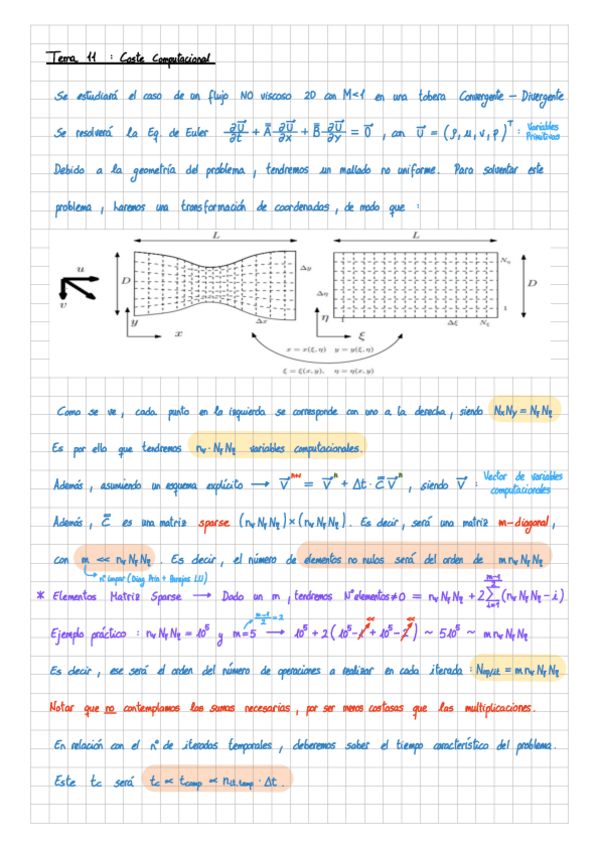 Tema 11 : Coste Computacional
Se estudiará el caso de un flujo NO viscoso 2D con M<1 en una tobera Convergente - Divergente
Se resolverá la Eq. de Euler ∂U⃗/∂t + A̿ ∂U⃗/∂x + B̿ ∂U⃗/∂y = 0⃗ , con U⃗ = (ρ, u, v, p)ᵀ : Variables Primitivas
Debido a la geometría del problema, tendremos un mallado no uniforme. Para solventar este
problema, haremos una transformación de coordenadas, de modo que :
L L
u D Δy Nη D
v Δη
y x Δx η ξ Δξ Nξ 1
x = x(ξ, η) y = y(ξ, η)
ξ = ξ(x, y), η = η(x, y)
Como se ve, cada punto en la izquierda se corresponde con uno a la derecha, siendo NxNy = NξNη
Es por ello que tendremos nv·NξNη variables computacionales.
Además, asumiendo un esquema explícito → V⃗ⁿ⁺¹ = V⃗ⁿ + Δt · C̿ V⃗ⁿ , siendo V⃗ : Vector de variables computacionales
Además, C̿ es una matriz sparse (nvNξNη)×(nvNξNη). Es decir, será una matriz m-diagonal,
con m << nvNξNη . Es decir, el número de elementos no nulos será del orden de m nvNξNη
nº impar (Diag Prin + Parejas LU)
* Elementos Matriz Sparse → Dado un m, tendremos Nº elementos≠0 = nvNξNη + 2 Σ_{i=1}^{(m-1)/2} (nvNξNη - i)
Ejemplo práctico : nvNξNη = 10⁵ y m=5 → (m-1)/2 = 2 10⁵ + 2(10⁵-1+10⁵-2) ~ 5·10⁵ ~ m nvNξNη
Es decir, ese será el orden del número de operaciones a realizar en cada iterada : Nop/it = m nvNξNη
Notar que no contemplamos las sumas necesarias, por ser menos costosas que las multiplicaciones.
En relación con el nº de iteradas temporales, deberemos saber el tiempo característico del problema.
Este tc será tc ∝ tcomp ∝ nit,temp · Δt .